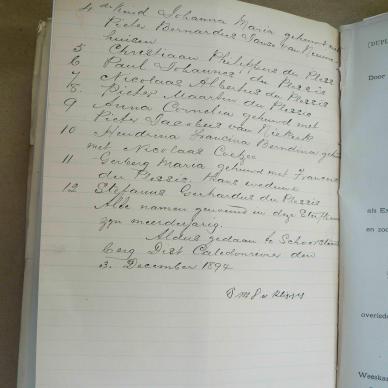 4 de Kind Johanna Maria gehuwd met
Pieter Bernardus Janse van Rensen
huisen
5 Christiaan Philippus du Plessis
6 Paul Johannes du Plessis
7 Nicolaas Albertus du Plessis
8. Pieter Maarten du Plessis
9 Anna Cornelia gehuwd met
Pieter Jacobus van Niekerk
10 Hendrina Francina Berndina
met Nicolaas Coetzee
11 Gerberg Maria gehuwd met Francois
du Plessis, thans weduwe
12 Stefanus Gerhardus du Plessis
Alde namen genoemd in deze
zyn meerderjarig.
Aldus gedaan te Schoorsteen
berg Dist Caledonrivier den
3. December 1894
(DUPL
Door
als Ex
en zoo
overlede
Weeskam